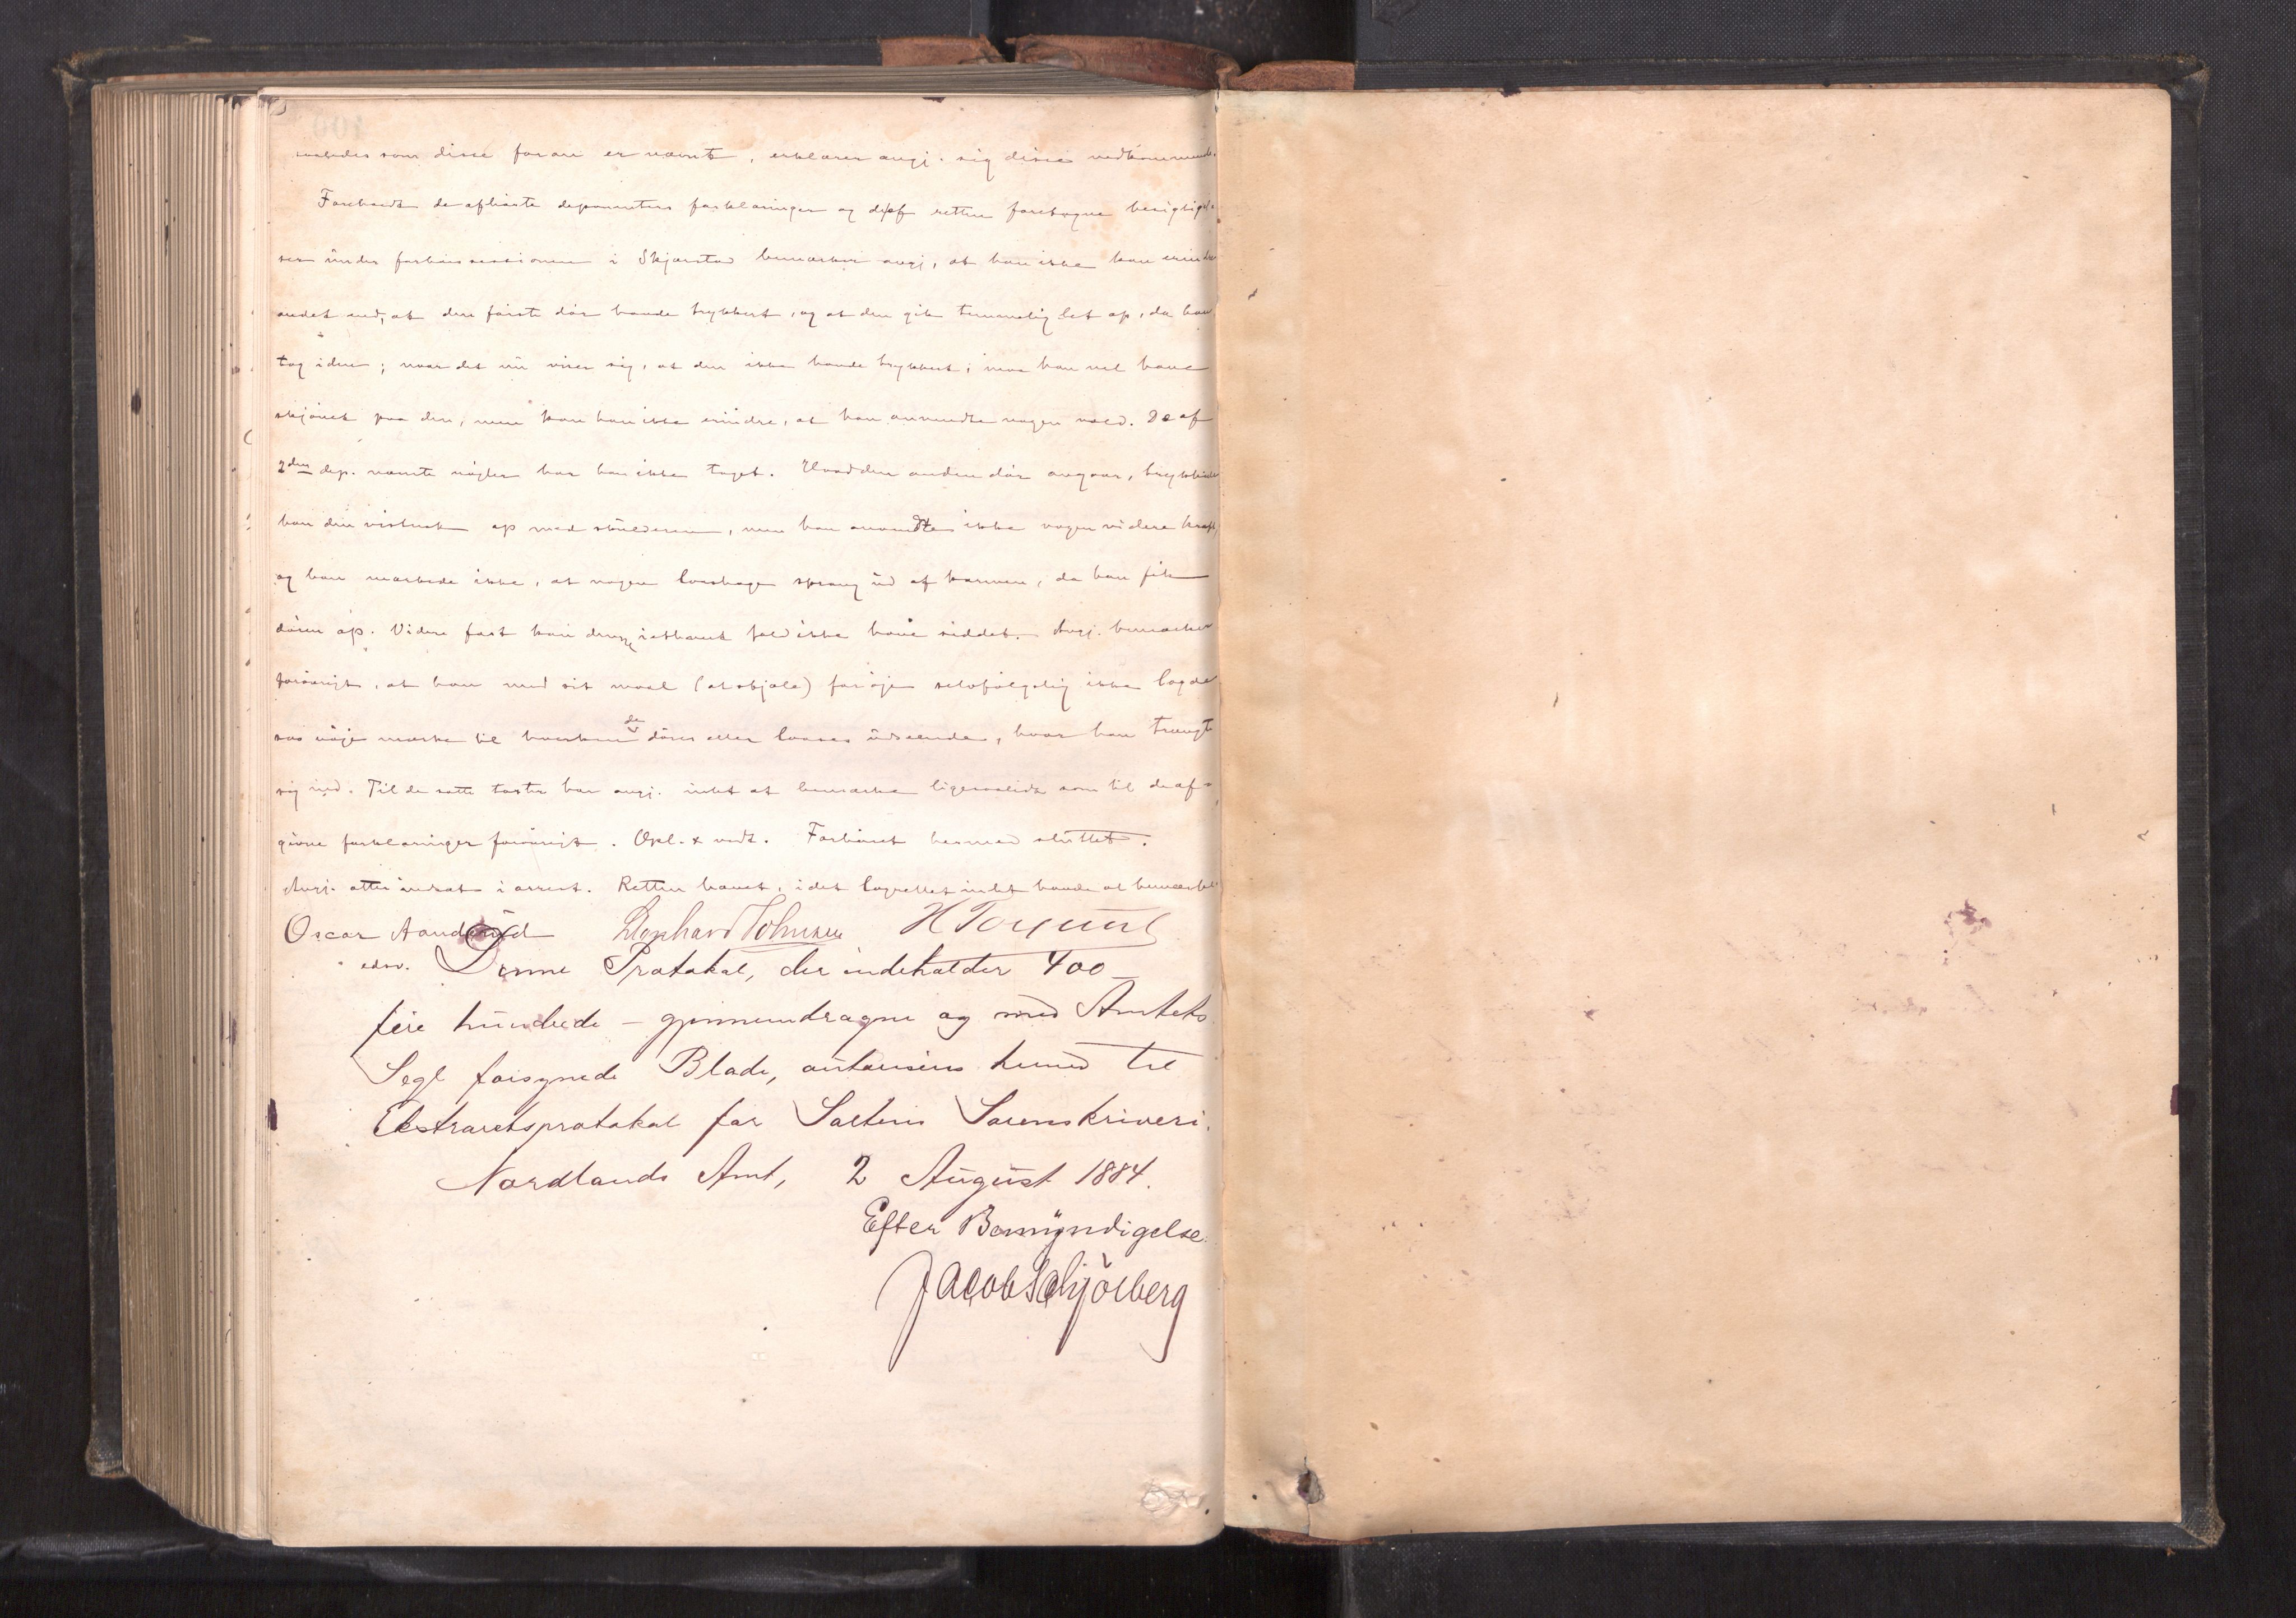 saaledes som disse foran er nævnt, erklærer angj. sig disse vedkommende.
Foreholdt de afhørte deponenters forklaringer og de af retten foretagne besigtigel-
ser under forhørssessionen i Skjærstad bemærker angj., at han ikke kan erindre
andet end, at den første dør havde trykkert, og at den gik temmelig let op, da han
tog i den; naar det nu viser sig, at den ikke havde trykkert, maa han vel have
skjøvet paa den, men kan han ikke erindre, at han anvendte nogen vold. De af
2den dep. nævnte nøgler har han ikke taget. Hvad den anden dør angaar, trykkede
han den vistnok op med skulderen, men han anvendte ikke nogen videre kraft,
og han mærkede ikke, at nogen laashage sprang ud af karmen, da han fik
døren op. Videre fast kan den i ethvert fald ikke have siddet. Angj. bemærker
forøvrigt, at han med sit maal (at stjæle) for øje selvfølgelig ikke lagde
saa nøje mærke til hverken de døres eller laases udseende, hvor han trængte
sig ind. Til de satte taxter har angj. intet at bemærke ligesaalidt som til de af-
givne forklaringer forøvrigt. Opl. & vedt. Forhøret hermed sluttet.
Angj. atter indsat i arrest. Retten hævet, idet lagrettet intet havde at bemærke.
Oscar Aanderud Johnsen H
edsv. Denne Protokol, der indeholder 400 –
fire hundrede – gjennemdragne og med Amtets
Segl forsynede Blade, autoriseres herved til
Ekstraretsprotokol for Saltens Sorenskriveri.
Nordlands Amt, 2 August 1884.
Efter Bemyndigelse
Jacob Schjölberg